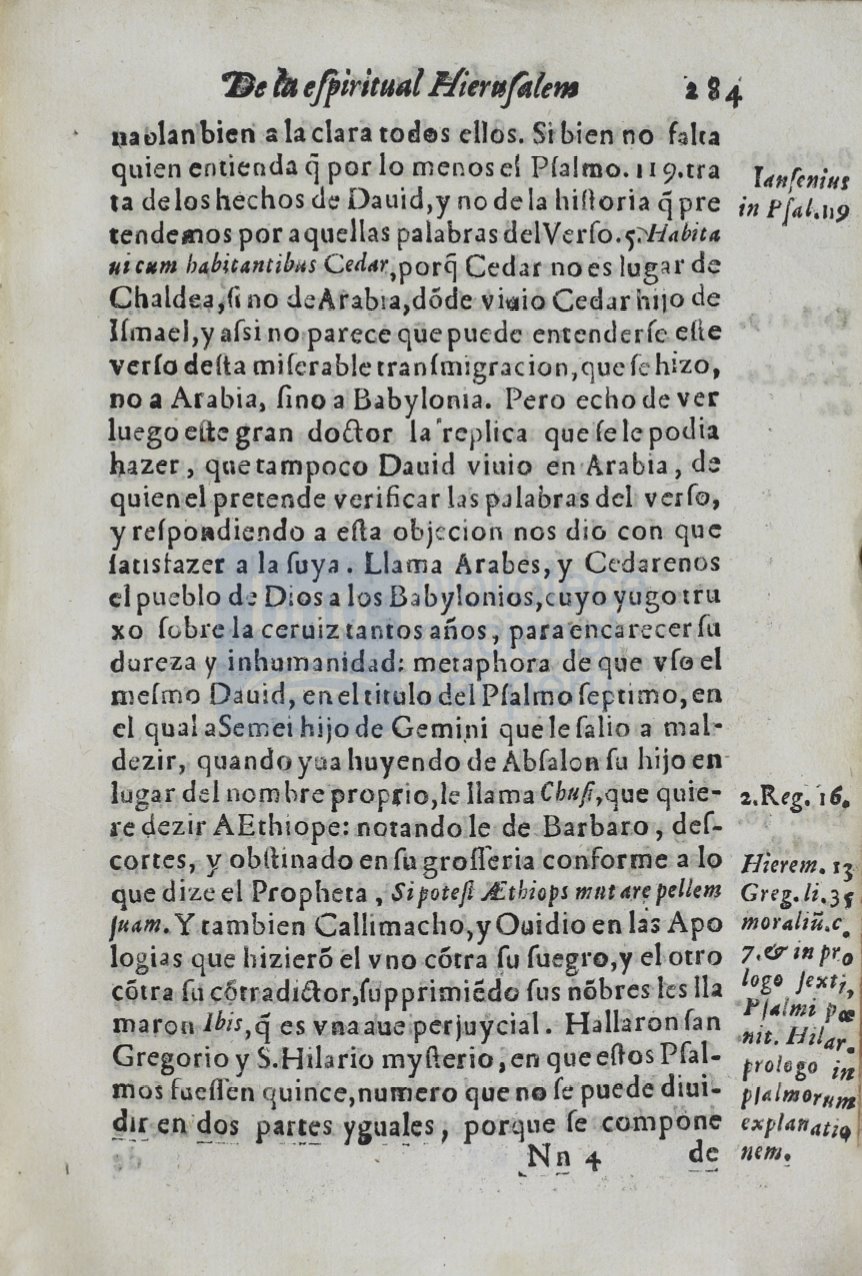 De la eſpiritual Hieruſalem 284
nablan bien a la clara todos ellos. Si bien no falta
quien entienda q̃ por lo menos el Pſalmo. 119. tra
ta de los hechos de Dauid, y no de la hiſtoria q̃ pre
tendemos por aquellas palabras del Verſo. 5. Habita
ui cum habitantibus Cedar, porq̃ Cedar no es lugar de
Chaldea, ſi no de Arabia, dõde viuio Cedar hijo de
Iſmael, y aſsi no parece que puede entenderſe eſte
verſo deſta miſerable tranſmigracion, que ſe hizo,
no a Arabia, ſino a Babylonia. Pero echo de ver
luego eſte gran doctor la replica que ſe le podia
hazer, que tampoco Dauid viuio en Arabia, de
quien el pretende verificar las palabras del verſo,
y reſpondiendo a eſta objecion nos dio con que
ſatisfazer a la ſuya. Llama Arabes, y Cedarenos
el pueblo de Dios a los Babylonios, cuyo yugo tru
xo ſobre la ceruiz tantos años, para encarecer ſu
dureza y inhumanidad: metaphora de que vſo el
meſmo Dauid, en el titulo del Pſalmo ſeptimo, en
el qual a Semei hijo de Gemini que le ſalio a mal-
dezir, quando yua huyendo de Abſalon ſu hijo en
lugar del nombre proprio, le llama Chuſi, que quie-
re dezir AEthiope: notando le de Barbaro, deſ-
cortes, y obſtinado en ſu groſſeria conforme a lo
que dize el Propheta, Si poteſt Æthiops mutare pellem
ſuam. Y tambien Callimacho, y Ouidio en las Apo
logias que hizierõ el vno cõtra ſu ſuegro, y el otro
cõtra ſu cõtradictor, ſupprimiẽdo ſus nõbres les lla
maron Ibis, q̃ es vna aue perjuycial. Hallaron ſan
Gregorio y S. Hilario myſterio, en que eſtos Pſal-
mos fueſſen quince, numero que no ſe puede diui-
dir en dos partes yguales, porque ſe compone
Nn 4 de
Ianſenius
in Pſal. 119
2. Reg. 16.
Hierem. 13
Greg. li. 35
moraliũ. c.
7. & in pro
logo ſexti,
Pſalmi pœ
nit. Hilar.
prologo in
pſalmorum
explanatio
nem.